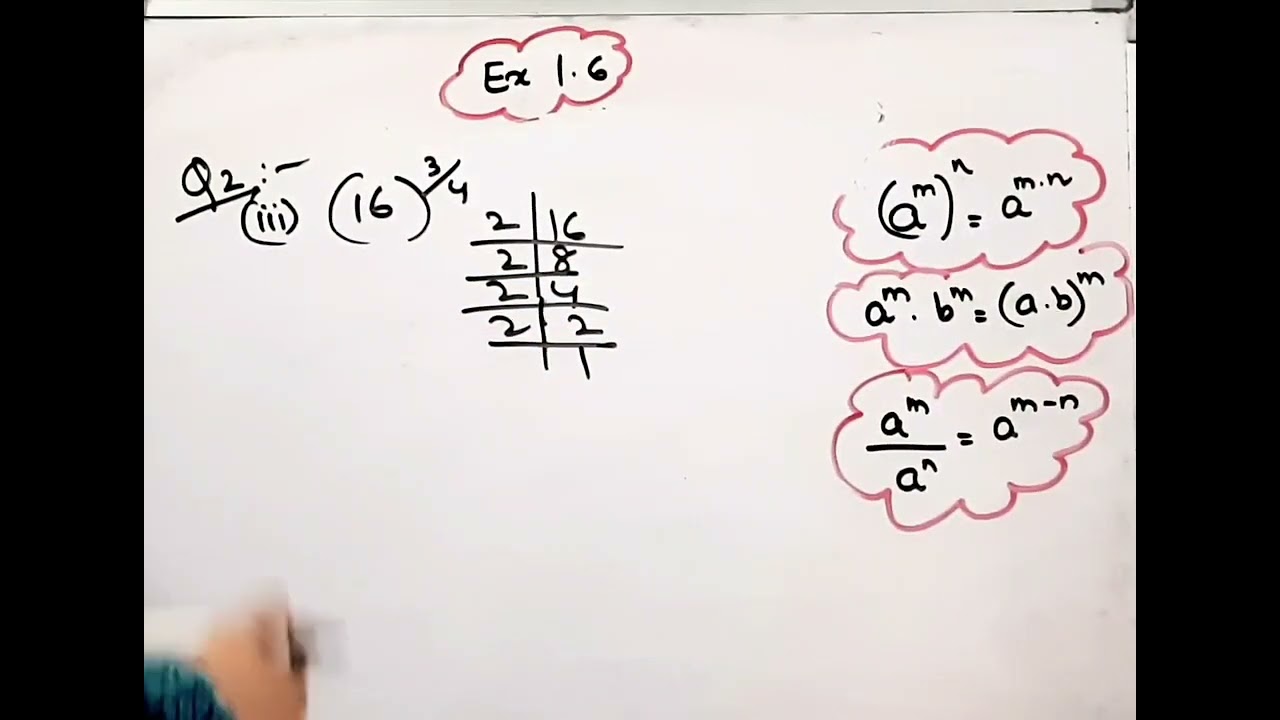 Ex 1.6
Q2:-
(iii) (16)^3/4
2 | 16
2 | 8
2 | 4
2 | 2
| 1
(a^m)^n = a^m.n
a^m . b^m = (a.b)^m
a^m / a^n = a^m-n